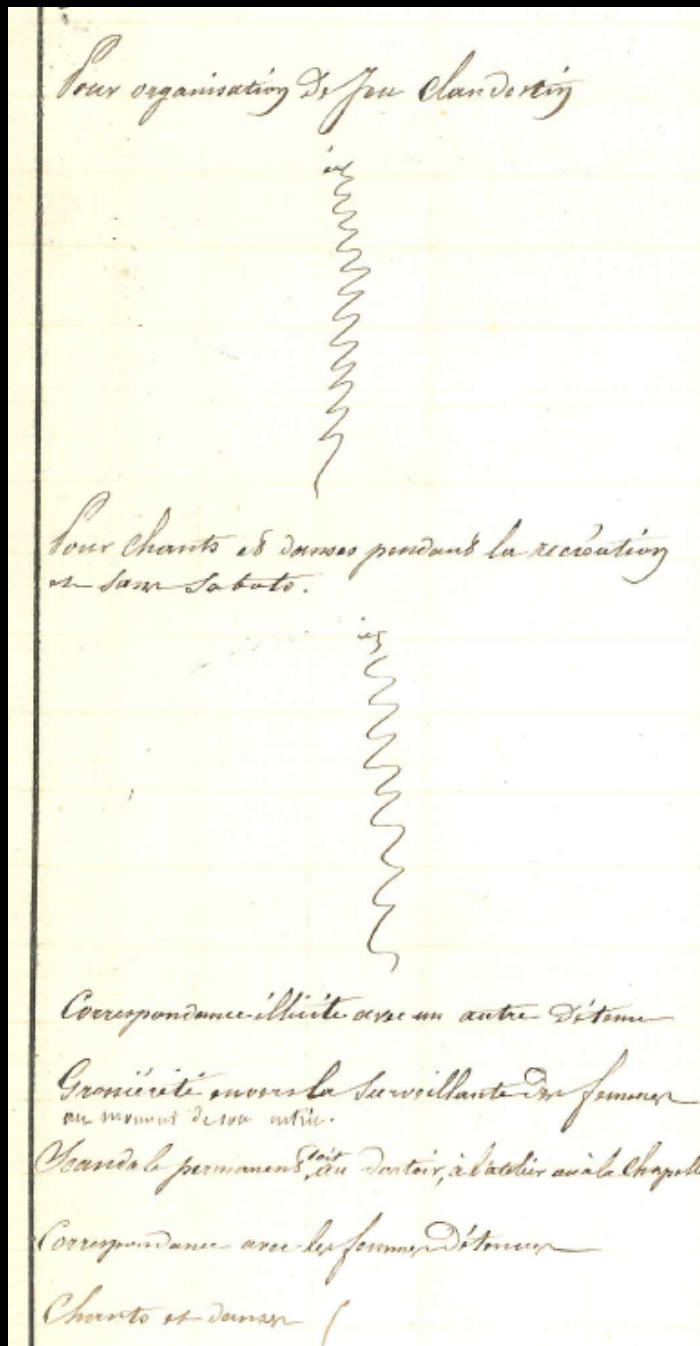 Pour organisation de Jeu clandestin
id
Pour chants et danses pendant la recréation
et sans sabots.
id
Correspondance illicite avec un autre détenu
Grossièreté envers la surveillante des femmes
au moment de son entrée.
Scandale permanent, soit au dortoir, à l'atelier ou à la chapelle
Correspondance avec les femmes détenues
Chants et danses